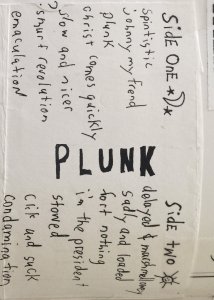 Side One
spintistic
johnny my frend
plunk
christ comes quickly
slow and nicer
smurf revolution
emaculation
PLUNK
Side two
delayed & marshmallowy
sadly and loaded
fort nothing
i'm the president
stowed
clik and suck
condamination